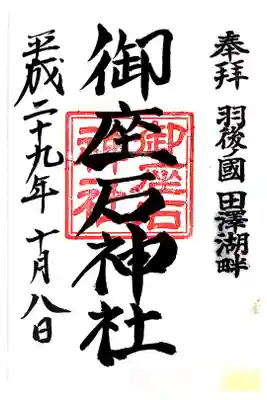 奉拝 羽後國 田澤湖畔
御座石神社
御座石神社
平成二十九年 十月八日